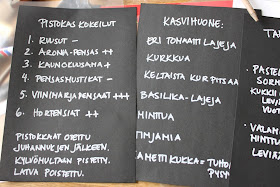 PISTOKAS KOKEILUT
1. RUUSUT -
2. ARONIA-PENSAS ++
3. KAUNOKUSAMA +
4. PENSASMUSTIKAT -
5. VIINIMARJAPENSAAT +++
6. HORTENSIAT ++
PISTOKKAAT OTETTU
JUHANNUKSEN JÄLKEEN.
KYLVÖMULTAAN PISTETTY.
LATVA POISTETTU.
KASVIHUONE:
ERI TOMAATTI LAJEJA
KURKKUA
KELTAISTA KURPITSAA
BASILIKA-LAJEJA
MINTTUA
TIMJAMIA
SAMETTI KUKKA = TUHO
PYSY
TA
- PASTE
SORM
KUKKII
LEVI
VUOT
- VALAN
HINTA
LEVIN